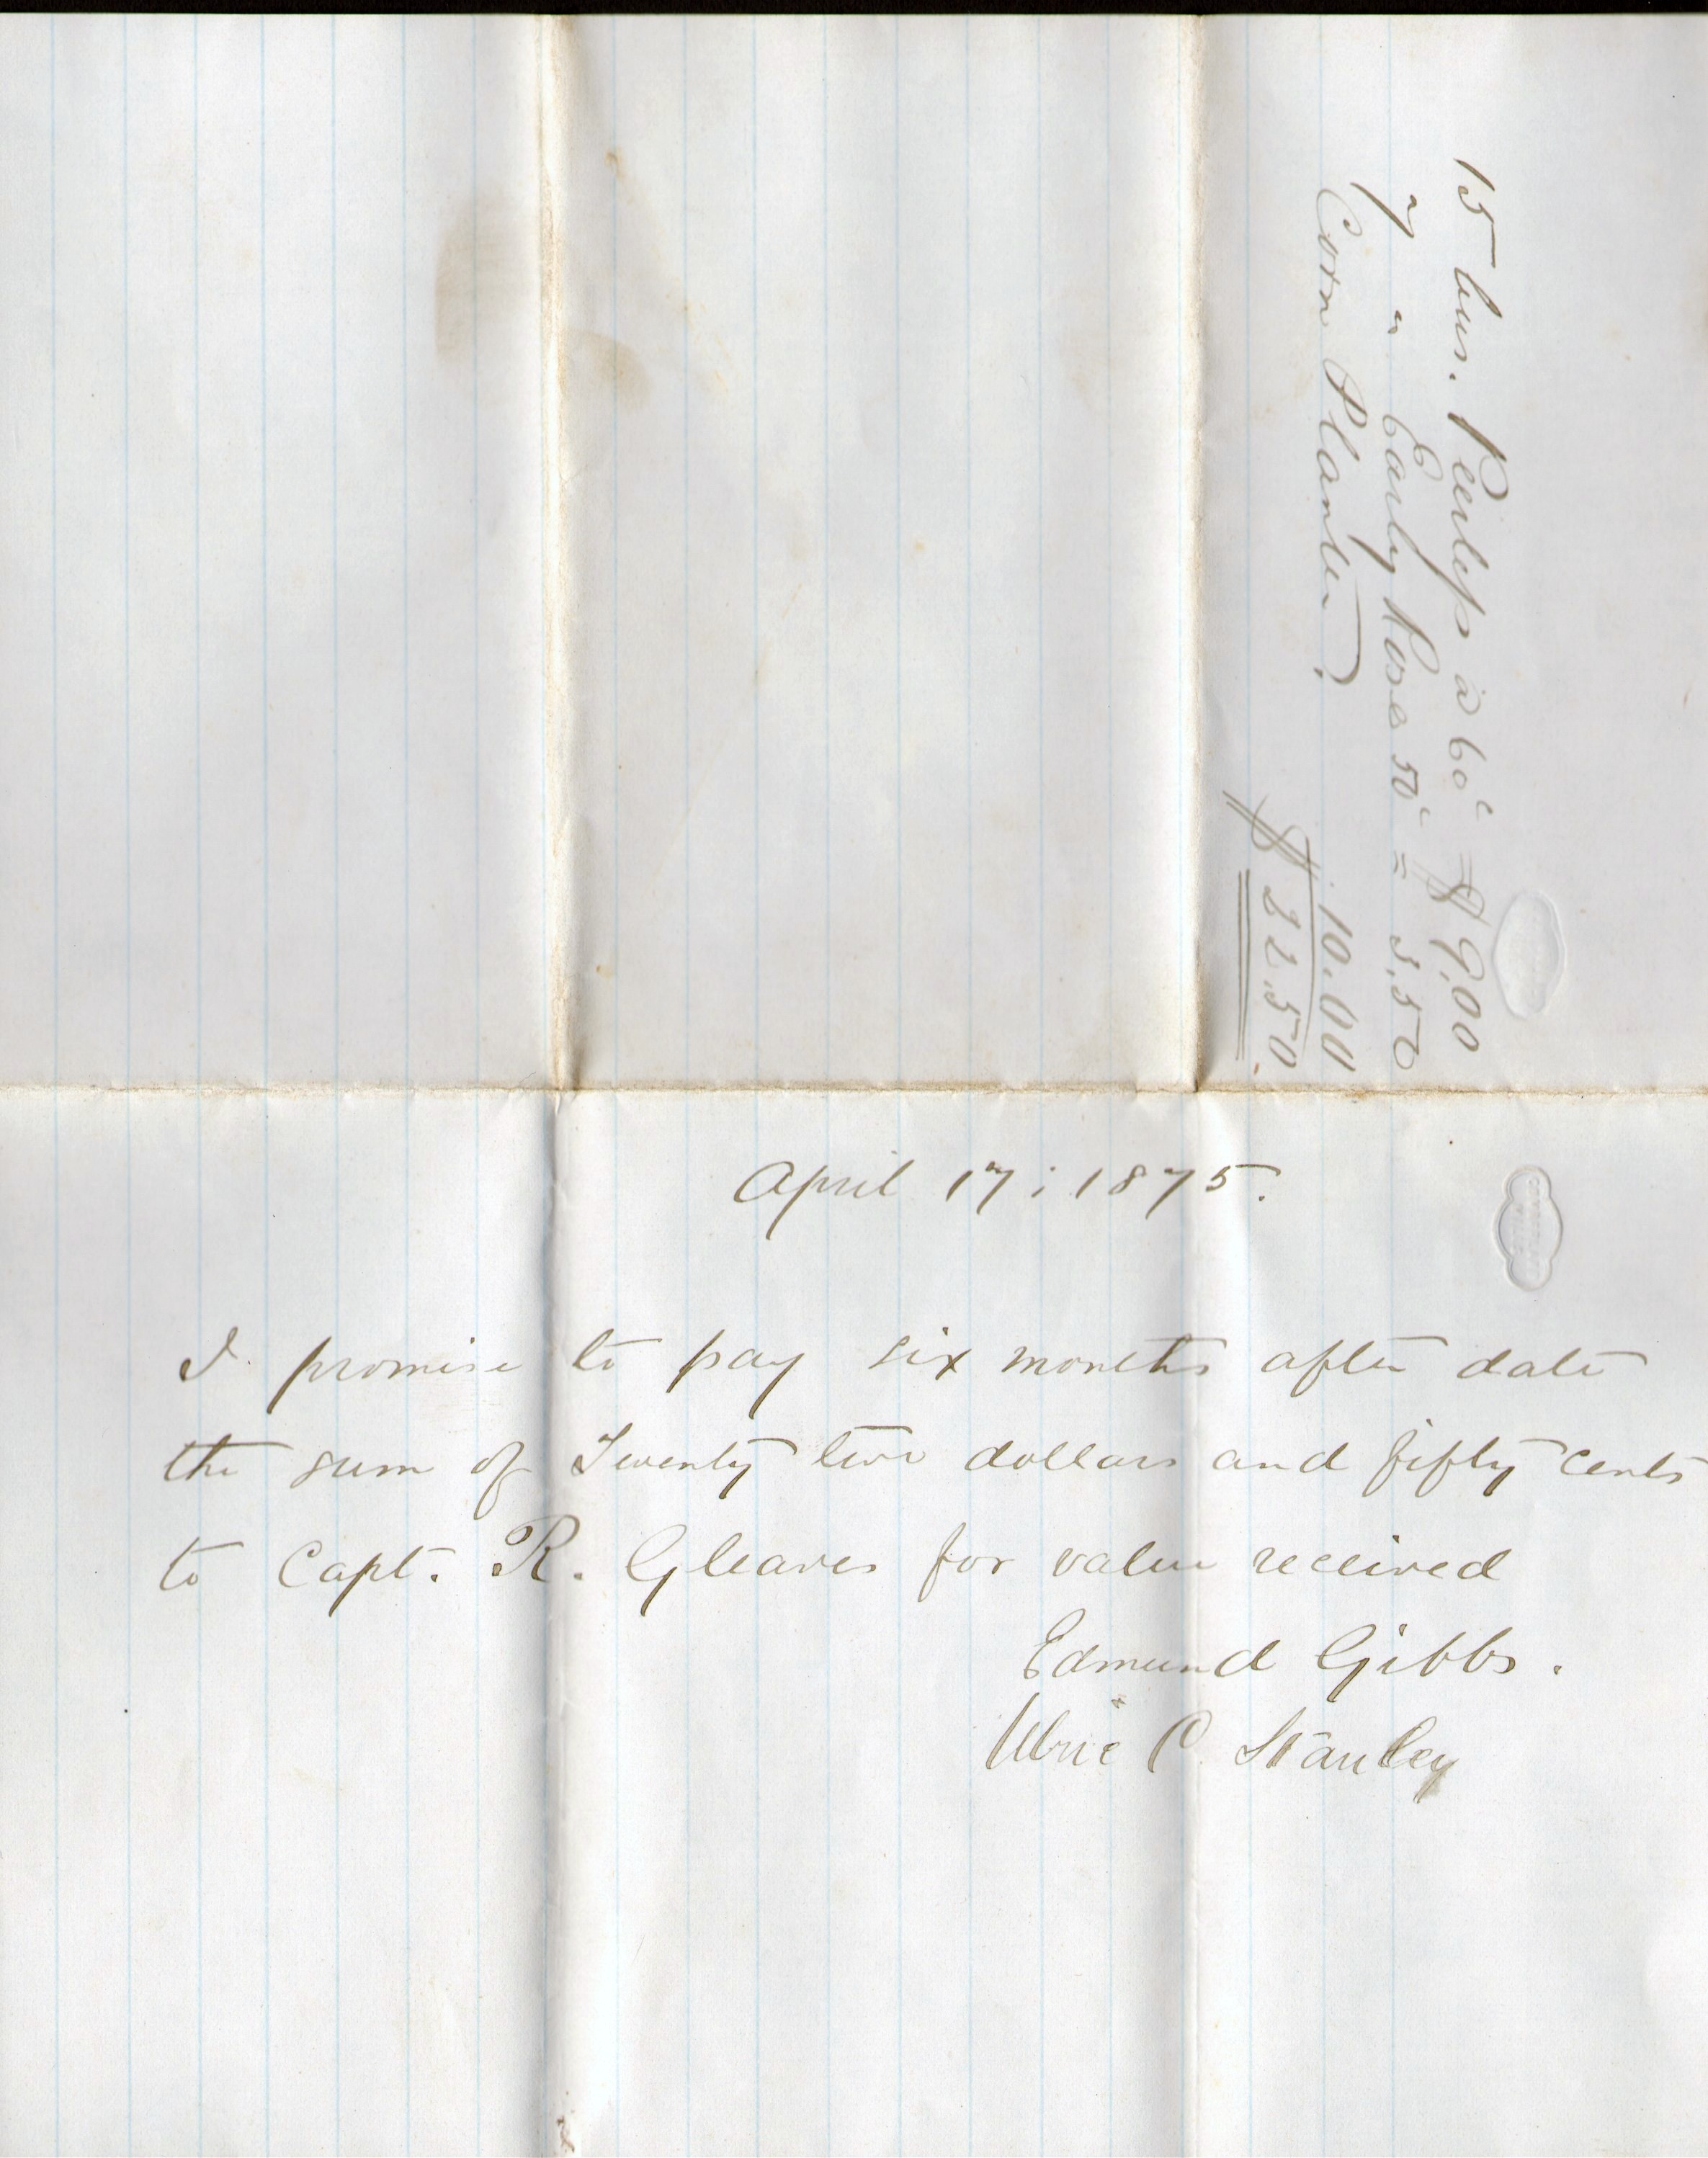 15 bus. Peerless a 60c $9,00
7 " Early Rose 50c = 3,50
Corn Planter, 10.00
$22.50
April 17; 1875.
I promise to pay six months after date
the sum of Twenty two dollars and fifty cents
to Capt. R. Gleaves for value received
Edmund Gibbs.
Ulric C. Stanley